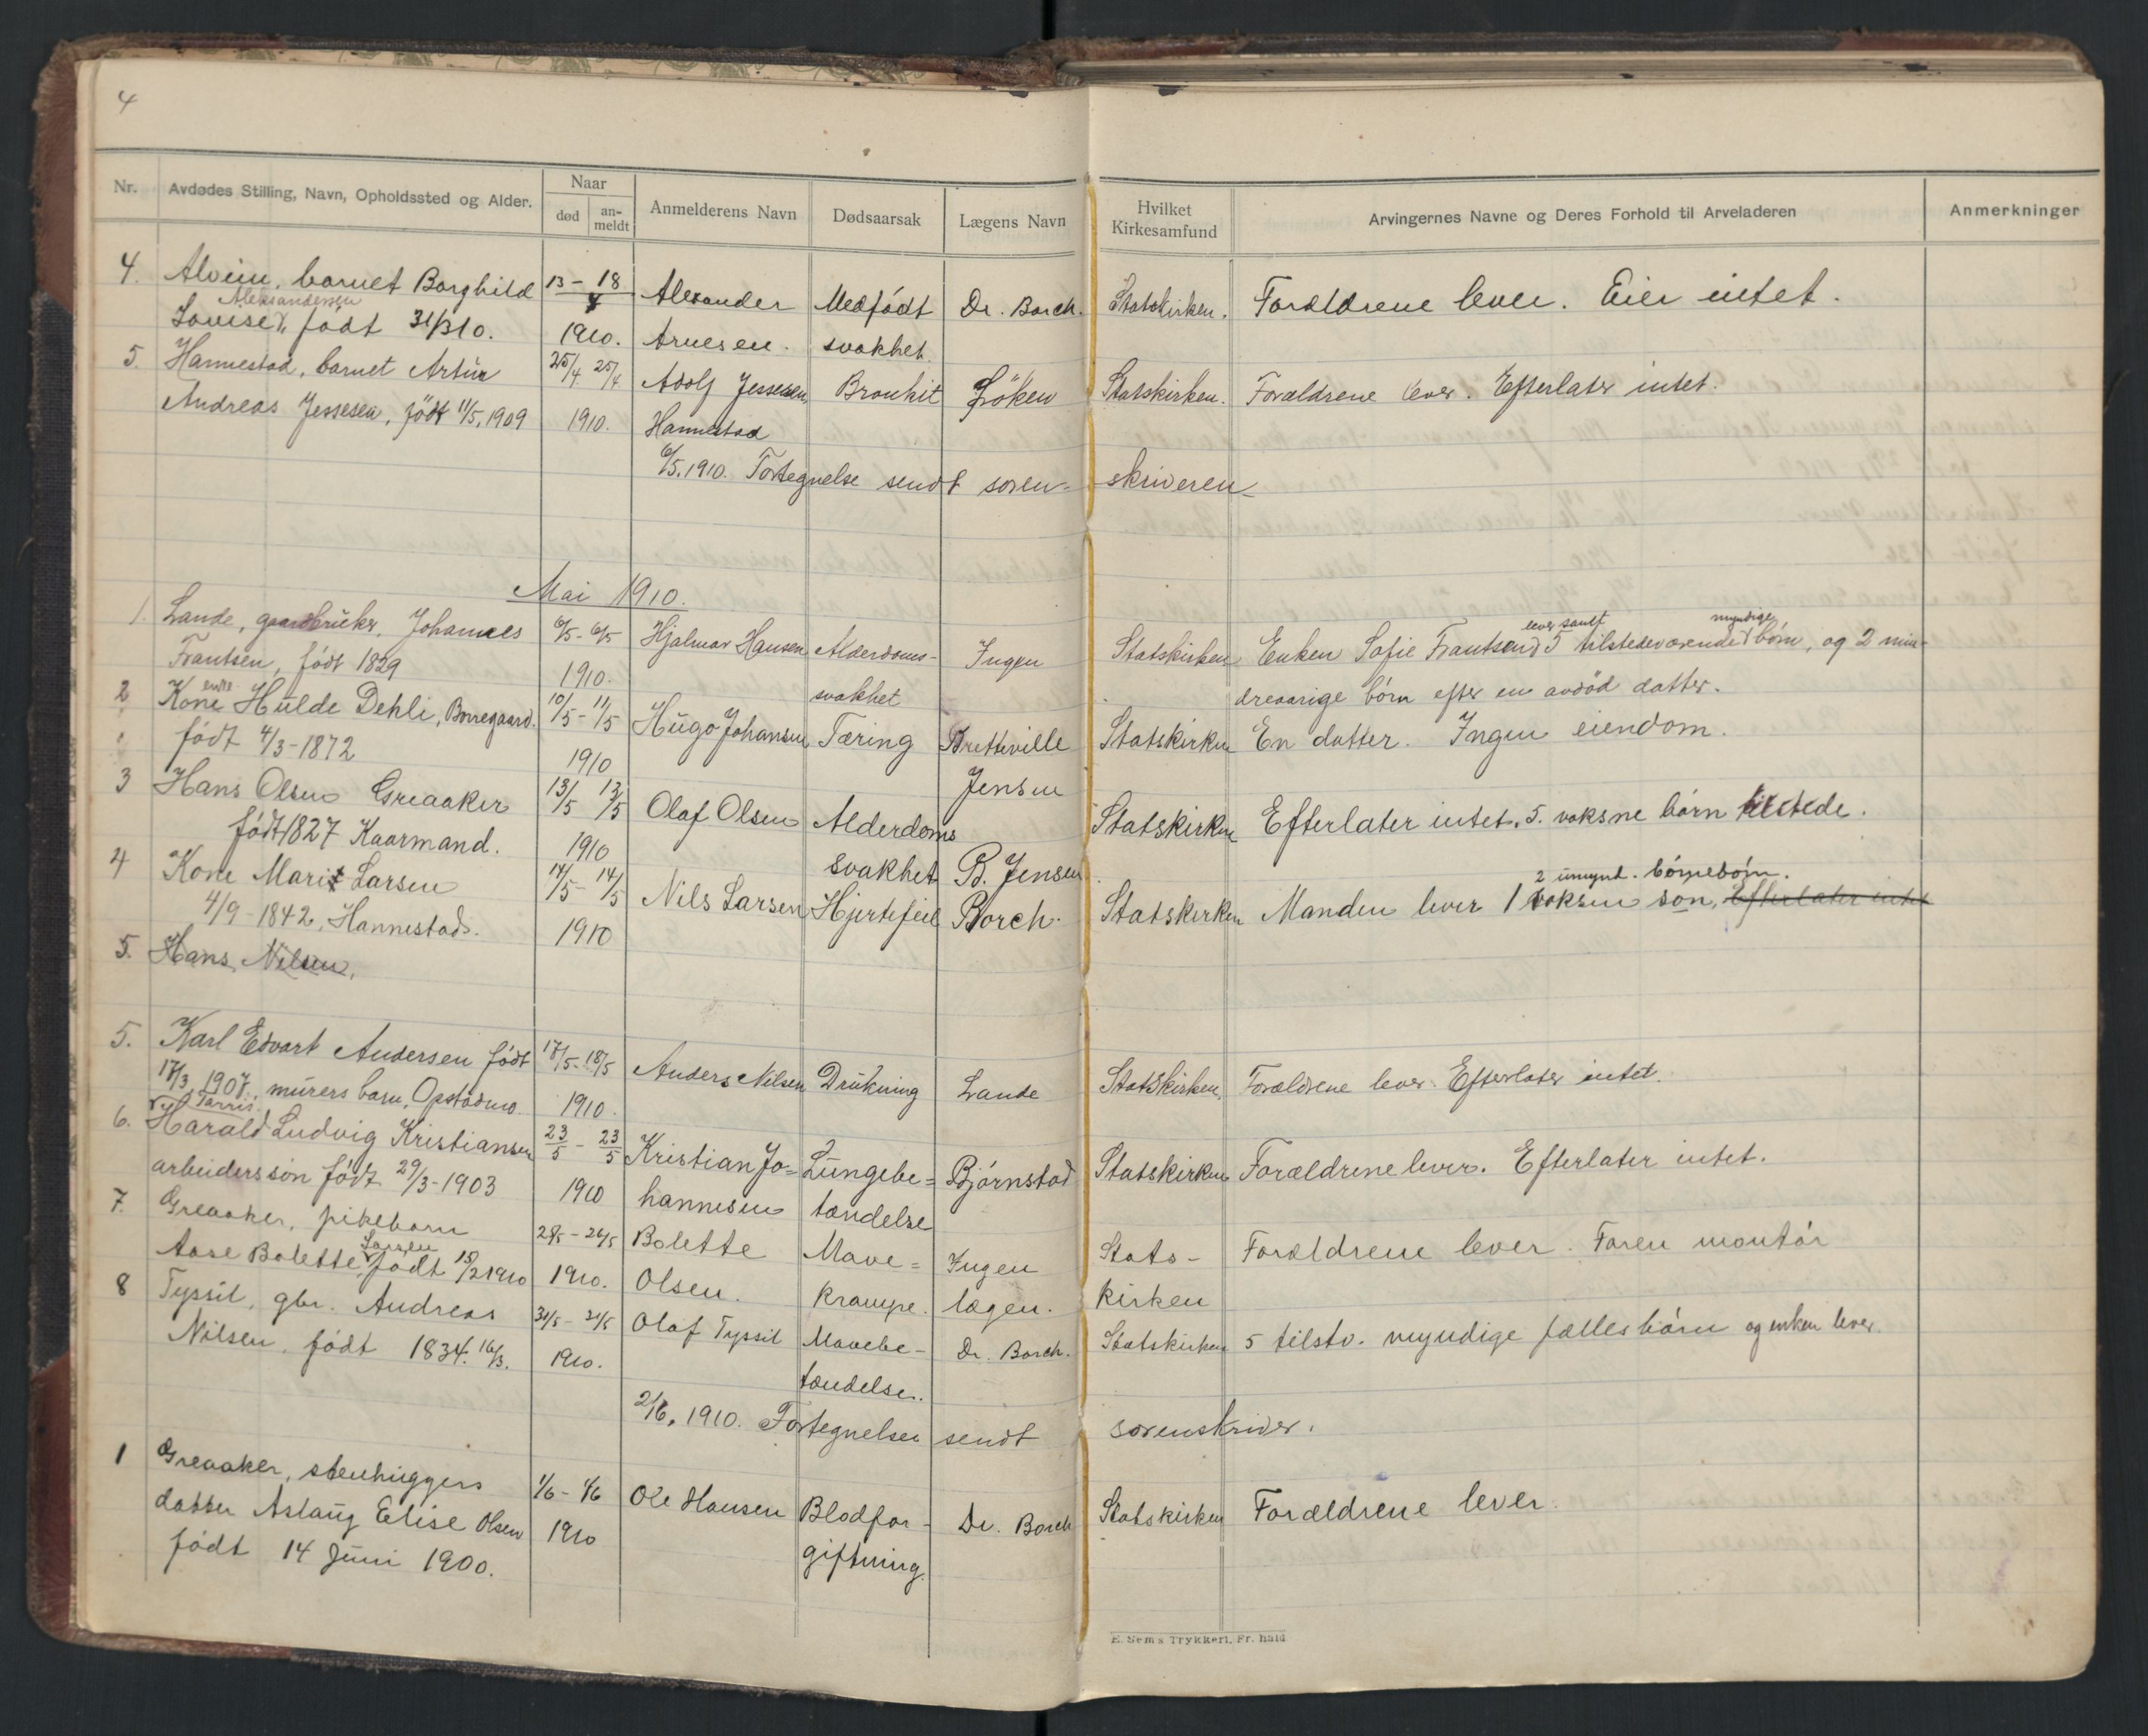 4
Nr.
Avdødes Stilling, Navn, Opholdssted og Alder.
Naar
død
an-
meldt
Anmelderens Navn
Dødsaarsak
Lægens Navn
Hvilket
Kirkesamfund
Arvingernes Navne og Deres Forhold til Arveladeren
Anmerkninger
4. Alvim, barnet Borghild 13 - 18 Alexander Medfødt Dr. Borch. Statskirken. Forældrene lever. Eier intet.
Aleksandersen
Lovise, født 31/3 10. 4 1910. Arnesen. svakhet.
5. Hannestad, barnet Artur 25/4 25/4 Adolf Jessesen Bronkit Løken Statskirken. Forældrene lever. Efterlater intet.
Andreas Jessesen, født 11/5, 1909 1910. Hannestad
6/5. 1910. Fortegnelse sendt soren- skriveren
Mai 1910.
lever samt myndige
1. Lande, gaardbruker, Johannes 6/5 - 6/5 Hjalmar Hansen Alderdoms- Ingen Statskirken Enken Sofie Frantsen 5 tilstedeværende børn, og 2 min-
Frantsen, født 1829 1910. svakhet dreaarige børn efter en avdød datter.
enke
2 Kone Hulde Dehli, Borregaard. 10/5 - 11/5 Hugo Johansen Tæring Bretteville Statskirken En datter. Ingen eiendom.
født 4/3 - 1872 1910 Jensen
3 Hans Olsen Greaaker 13/5 13/5 Olaf Olsen Alderdoms Statskirken Efterlater intet. 5. voksne børn tilstede.
født 1827 Kaarmand. 1910 svakhet B. Jensen
2 umynd. børnebørn.
4 Kone Marie Larsen 14/5 - 14/5 Nils Larsen Hjertefeil Borch. Statskirken Manden lever 1 voksen søn, Efterlater intet
4/9 - 1842, Hannestad. 1910
5. Hans Nilsen,
5. Karl Edvart Andersen født 17/5 - 18/5 Anders Nilsen Drukning Lande Statskirken, Forældrene lever. Efterlater intet.
17/3 1907, murers barn, Opstadmo. 1910.
Tarris.
6. Harald Ludvig Kristiansen 23/5 - 23/5 Kristian Jo= Lungebe= Bjørnstad Statskirken Forældrene lever. Efterlater intet.
arbeiders søn født 29/3 - 1903 1910 hannesen tændelse
7. Greaaker, pikebarn 25/5 - 26/5 Bolette Mave= Ingen Stats- Forældrene lever. Faren montør
Larsen
Aase Bolette, født 15/2 1910 1910. Olsen. krampe. lægen. kirken
8 Tyssil, gbr. Andreas 31/5 - 31/5 Olaf Tyssil Mavebe- Dr. Borch. Statskirken 5 tilstv. myndige fælles børn og enken lever.
Nilsen, født 1834. 16/3. 1910. tændelse.
2/6, 1910. Fortegnelsen sendt sorenskriver.
1 Greaaker, stenhuggers 1/6 - 4/6 Ole Hansen Blodfor- Dr. Borch Statskirken Forældrene lever.
datter Aslaug Elise Olsen 1910 giftning.
født 14 Juni 1900.
E. Sems Trykkeri, Fr.hald